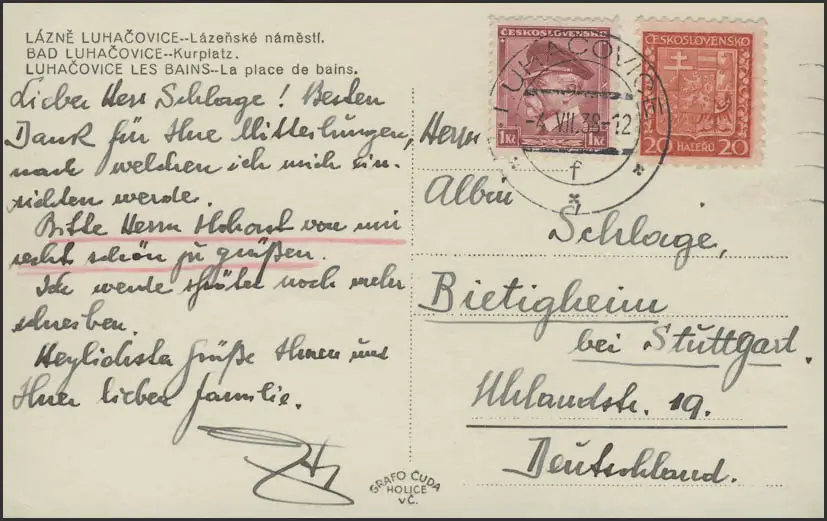 LÁZNĚ LUHAČOVICE--Lázeňské náměstí.
BAD LUHAČOVICE--Kurplatz.
LUHAČOVICE LES BAINS--La place de bains.
Lieber Herr Schlage! Besten
Dank für Ihre Mitteilungen,
nach welchen ich mich ein-
richten werde.
Bitte Herrn von mir
recht schön zu grüßen.
Ich werde später noch mehr
schreiben.
Herzlichste Grüße Ihnen und
Ihrer lieben Familie.
GRAFO ČUDA
HOLICE
VČ.
ČESKOSLOVENSKO
1Kč 1Kč
ČESKOSLOVENSKO
20 HALÉŘŮ 20
LUHAČOVICE
-4.VII.38-12
f
Herrn
Schlage,
Bietigheim
bei Stuttgart.
Uhlandstr. 19.
Deutschland.